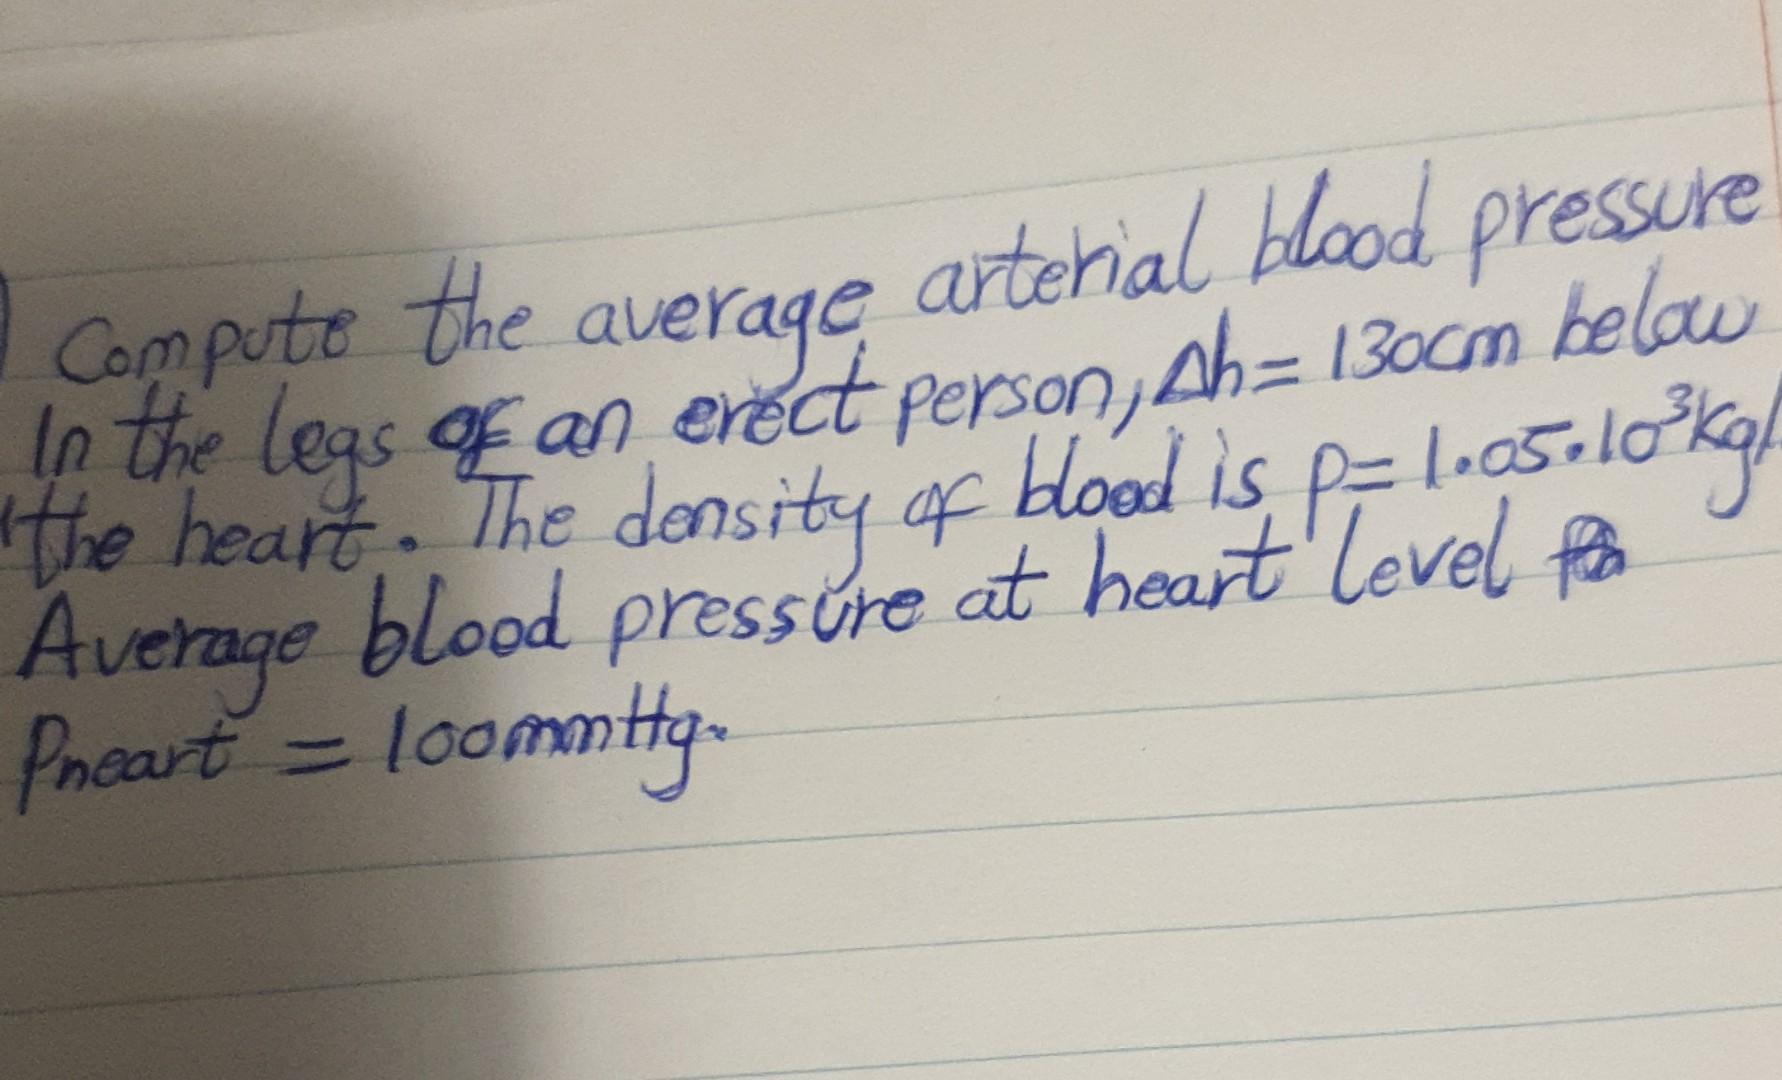 ) Compute the average arterial blood pressure
In the legs of an erect person, Δh= 130cm below
the heart. The density of blood is ρ= 1.05.10³kg/
Average blood pressure at heart level
Pheart = 100mmHg.